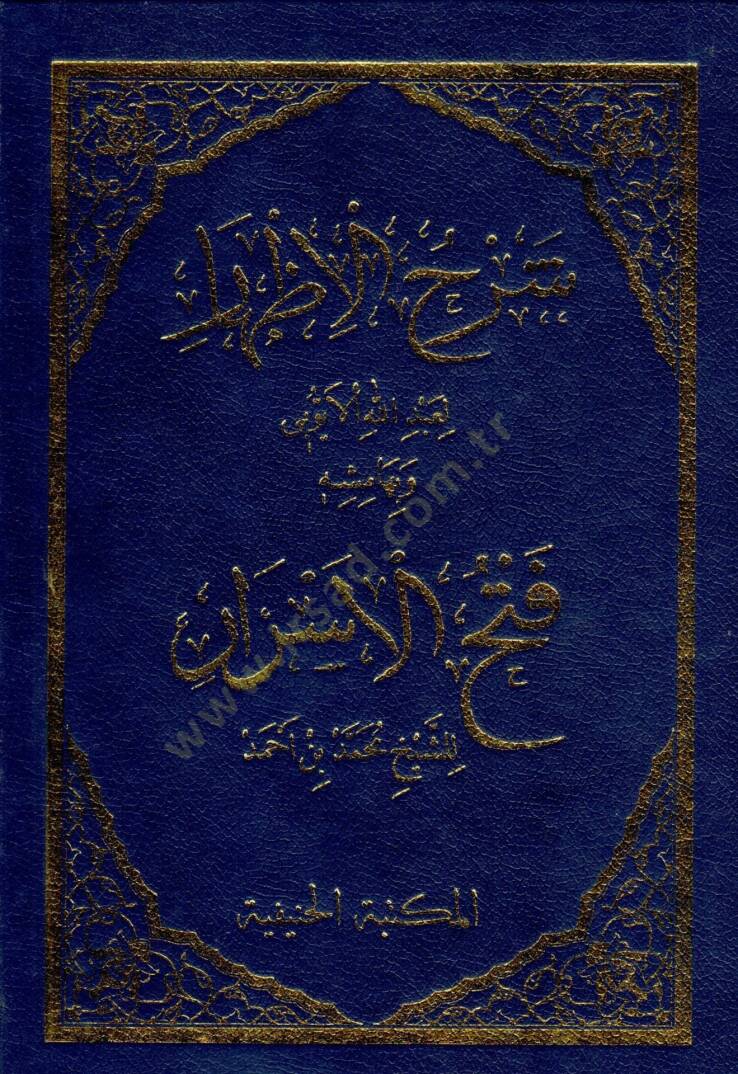 شَرْحُ الْإِظْهَارِ
لِعَبْدِ اللهِ الْأَيُّوبِي
وَبِهَامِشِهِ
فَتْحُ الْأَسْرَارِ
لِلشَّيْخِ مُحَمَّدِ بْنِ اَحْمَدَ
المكتبة الحنيفية
www.irsad.com.tr